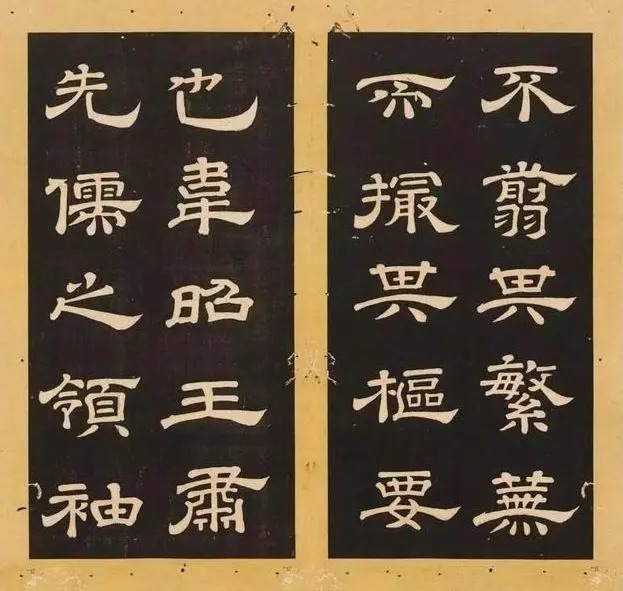 不翦其繁蕪
而撮其樞要
也韋昭王肅
先儒之領袖